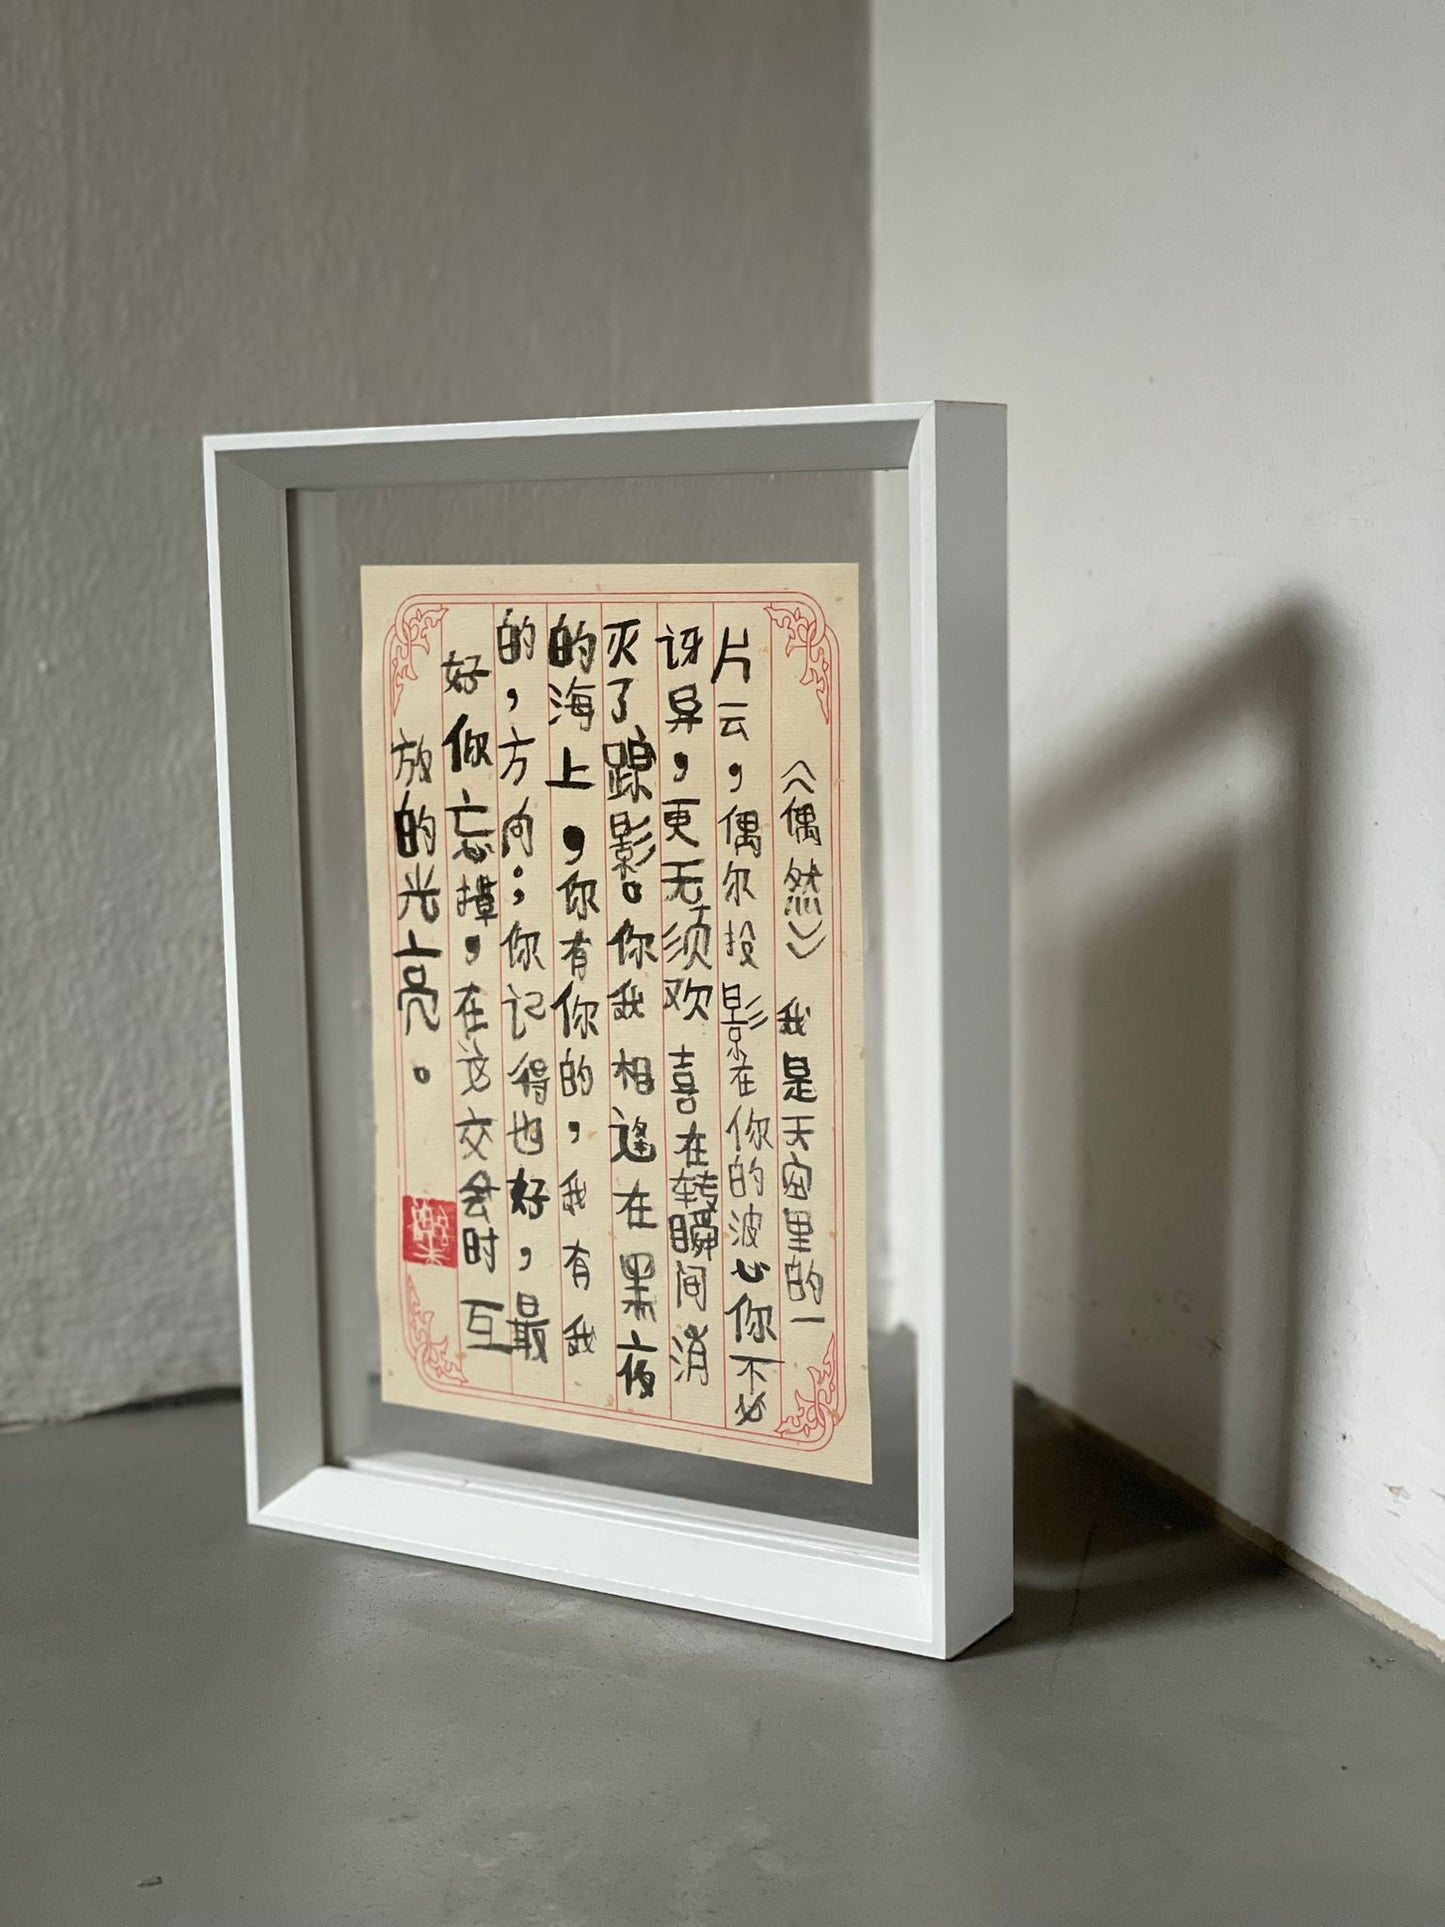 《偶然》 我是天宙里的一
片云，偶尔投影在你的波心你不必
讶异，更无须欢喜在转瞬间消
灭了踪影。你我相逢在黑夜
的海上，你有你的，我有我
的，方向；你记得也好，最
好你忘掉，在这交会时互
放的光亮。